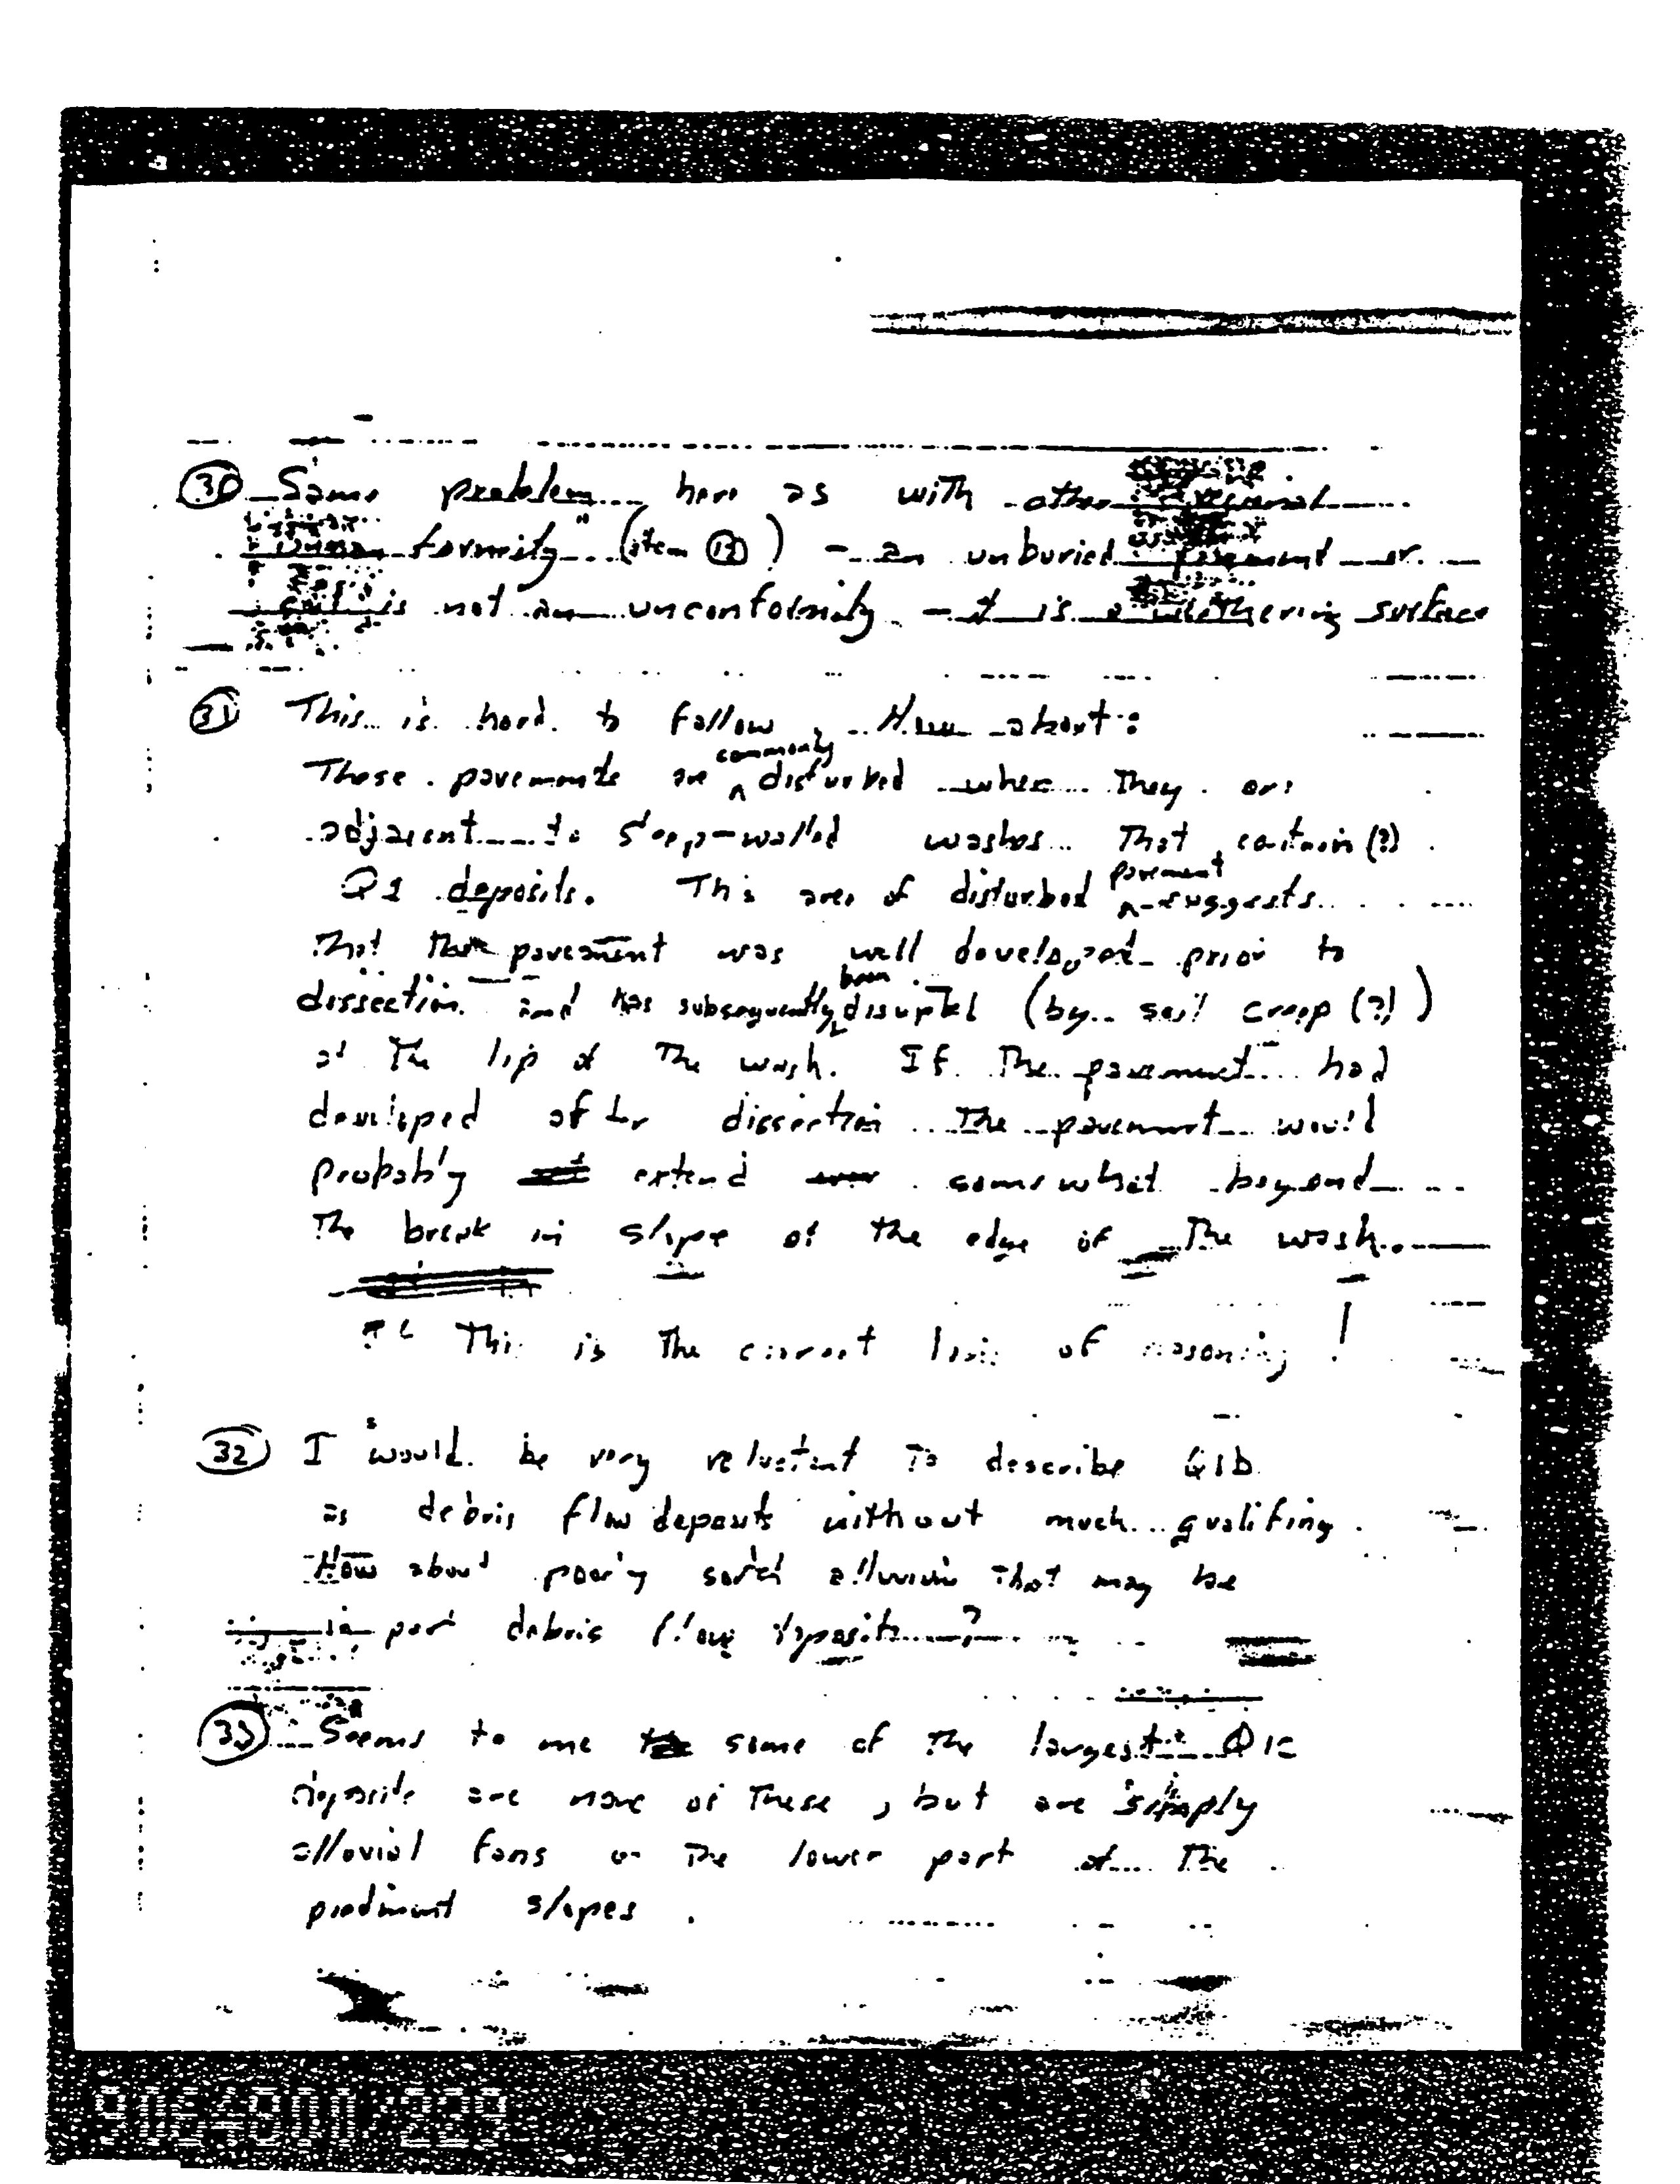 30 Same problem here as with other regional
unconformity" (item 12) - an unburied pavement or
soil is not an unconformity - it is a weathering surface
31 This is hard to follow, How about:
These pavements are commonly disturbed where they are
adjacent to steep-walled washes that contain (?)
Q1 deposits. This area of disturbed pavement suggests
that the pavement was well developed prior to
dissection and has subsequently been disrupted (by soil creep (?))
at the lip of the wash. If the pavement had
developed after dissection the pavement would
probably extend somewhat beyond
the break in slope at the edge of the wash.
This is the correct of reasoning!
32 I would be very reluctant to describe Q1b
as debris flow deposits without much qualifing.
How about poorly sorted alluvium that may be
in part debris flow deposits?
33 Seems to me some of the largest Q1c
deposits are none of these, but are simply
alluvial fans on the lower part of the
piedmont slopes.